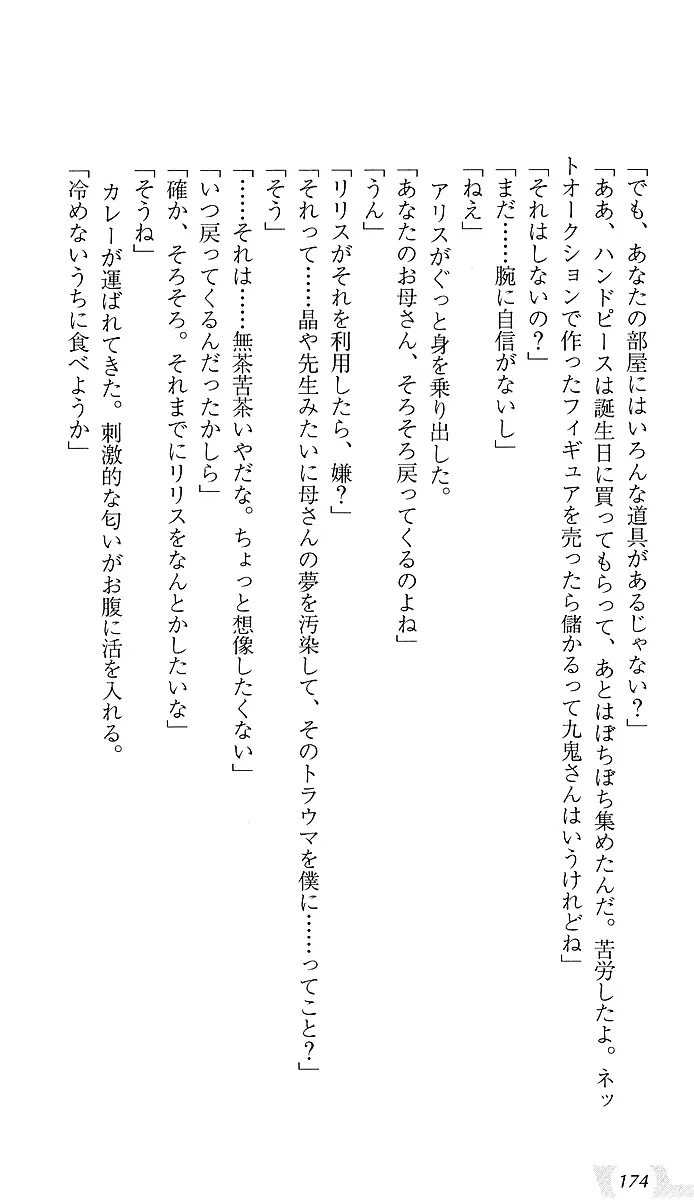 「でも、あなたの部屋にはいろんな道具があるじゃない？」
「ああ、ハンドピースは誕生日に買ってもらって、あとはぼちぼち集めたんだ。苦労したよ。ネッ
トオークションで作ったフィギュアを売ったら儲かるって九鬼さんはいうけれどね」
「それはしないの？」
「まだ……腕に自信がないし」
「ねえ」
アリスがぐっと身を乗り出した。
「あなたのお母さん、そろそろ戻ってくるのよね」
「うん」
「リリスがそれを利用したら、嫌？」
「それって……晶や先生みたいに母さんの夢を汚染して、そのトラウマを僕に……ってこと？」
「そう」
「……それは……無茶苦茶いやだな。ちょっと想像したくない」
「いつ戻ってくるんだったかしら」
「確か、そろそろ。それまでにリリスをなんとかしたいな」
「そうね」
カレーが運ばれてきた。刺激的な匂いがお腹に活を入れる。
「冷めないうちに食べようか」
174